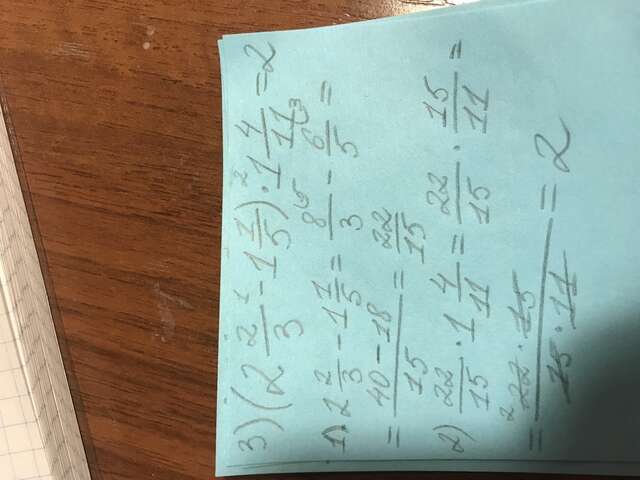 3) (2 2/3 - 1 1/5) · 1 4/11 = 2
1) 2 2/3 - 1 1/5 = 8/3 - 6/5 =
= (40 - 18)/15 = 22/15
2) 22/15 · 1 4/11 = 22/15 · 15/11 =
= (22 · 15)/(15 · 11) = 2